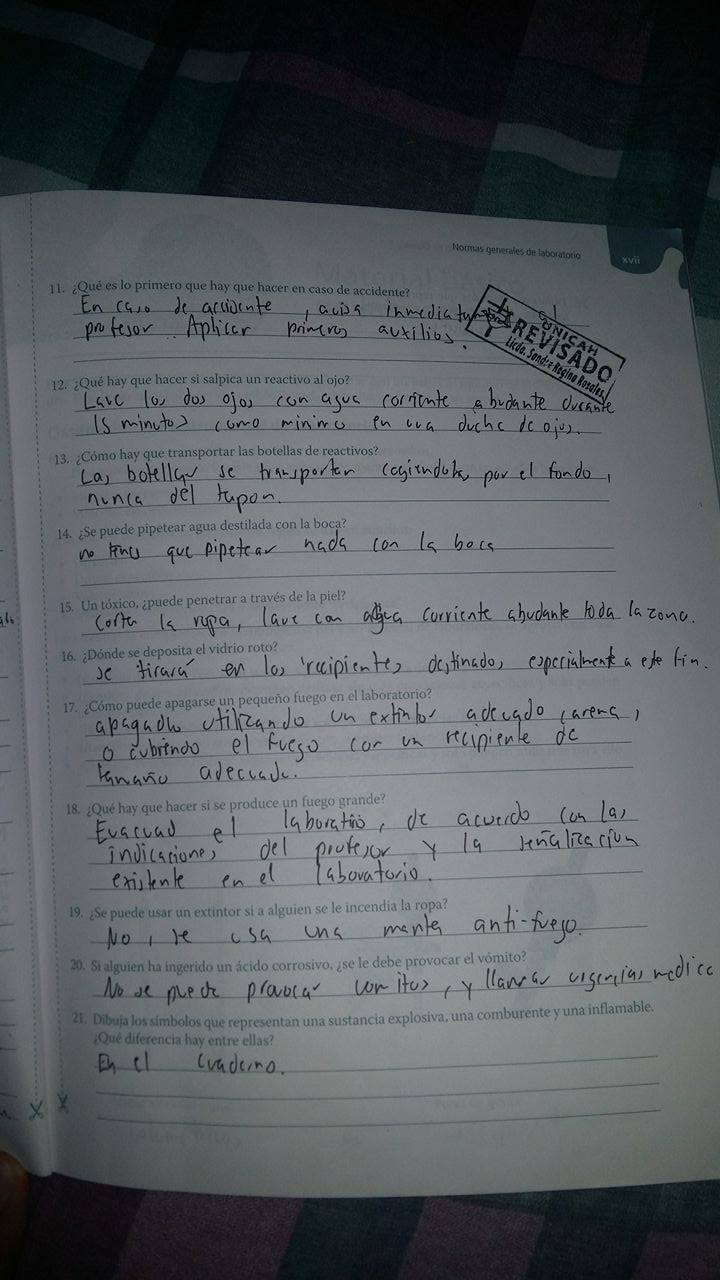 Normas generales de laboratorio
xvii
11. ¿Qué es lo primero que hay que hacer en caso de accidente?
En caso de accidente, avisa inmediatamente al
profesor. Aplicar primeros auxilios.
UNICAH
REVISADO
Licda. Sandra Regina Rosales
12. ¿Qué hay que hacer si salpica un reactivo al ojo?
Lave los dos ojos con agua corriente abudante durante
15 minutos como minimo en una ducha de ojos.
13. ¿Cómo hay que transportar las botellas de reactivos?
Las botellas se transportan cogiendolas por el fondo,
nunca del tapon.
14. ¿Se puede pipetear agua destilada con la boca?
no tines que pipetear nada con la boca
15. Un tóxico, ¿puede penetrar a través de la piel?
Corta la ropa, lave con agua corriente abudante toda la zona.
16. ¿Dónde se deposita el vidrio roto?
se tirará en los recipientes destinados especialmente a este fin.
17. ¿Cómo puede apagarse un pequeño fuego en el laboratorio?
apagadlo utilizando un extintor adecuado, arena,
o cubriendo el fuego con un recipiente de
tamaño adecuado.
18. ¿Qué hay que hacer si se produce un fuego grande?
Evacuad el laboratio, de acuerdo con las
indicaciones del profesor y la señalización
existente en el laboratorio.
19. ¿Se puede usar un extintor si a alguien se le incendia la ropa?
No, se usa una manta anti-fuego.
20. Si alguien ha ingerido un ácido corrosivo, ¿se le debe provocar el vómito?
No se puede provocar vomitos, y llamar urgencias medica
21. Dibuja los símbolos que representan una sustancia explosiva, una comburente y una inflamable.
¿Qué diferencia hay entre ellas?
En el cuaderno.